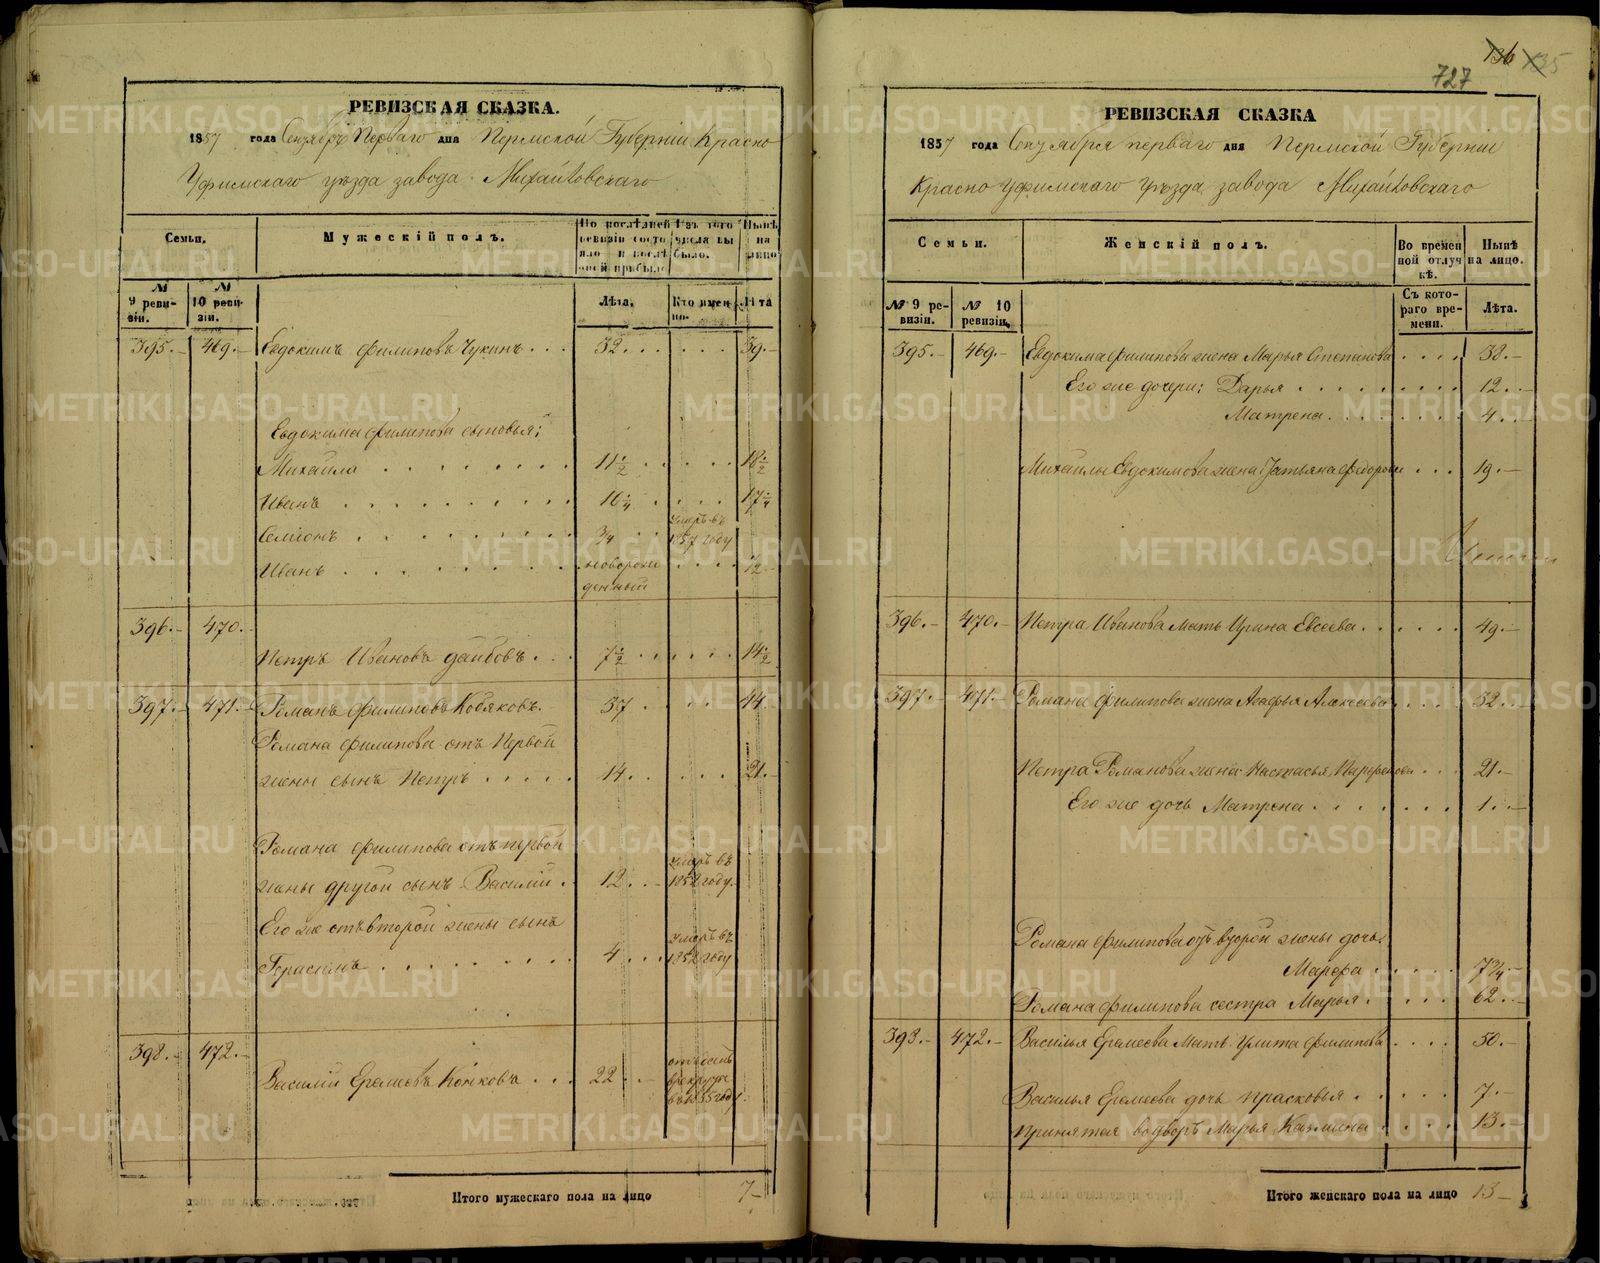 РЕВИЗСКАЯ СКАЗКА.
1857 года Сентября Перваго дня Пермской Губерніи Красно
Уфимскаго уѣзда завода Михайловскаго
Семьи.
Мужескій полъ.
По послѣдней ревизіи состояло и послѣ оной прибыло
Изъ того числа выбыло.
Нынѣ на лицо
№ 9 ревизіи.
№ 10 ревизіи.
Лѣта.
Кто именно.
Лѣта
395. 469. Евдокимъ Филиповъ Чукинъ . . . 32 . . . 39.
Евдокима Филипова сыновья;
Михайло . . . 11 1/2 . . . 18 1/2
Иванъ . . . 10 1/4 . . . 17 1/4
Семіонъ . . . 3/4 . . . умеръ въ 1857 году
Иванъ . . . новорожденный . . . 12
396. 470.
Петръ Ивановъ . . . 7 1/2 . . . 14 1/2
397. 471. Романъ Филиповъ Кобяковъ. 37 . . . 44
Романа Филипова отъ Первой
жены сынъ Петръ . . . 14 . . . 21.
Романа Филипова отъ первой
жены другой сынъ Василій . 12 . . умеръ въ 1852 году.
Его же отъ второй жены сынъ
Герасимъ . . . 4 . . . умеръ въ 1852 году
398. 472.
Василій Еремеевъ . . . 22 . . въ 1855 году
Итого мужескаго пола на лицо 7
136 135
727
РЕВИЗСКАЯ СКАЗКА
1857 года Сентября перваго дня Пермской Губерніи
Красно Уфимскаго уѣзда завода Михайловскаго
Семьи.
Женскій полъ.
Во временной отлучкѣ.
Нынѣ на лицо.
№ 9 ревизіи.
№ 10 ревизіи.
Съ котораго времени.
Лѣта.
395. 469. Евдокима Филипова жена Марья Степанова . . . 38.
Его же дочери; Дарья . . . 12 . .
Матрена . . . 4 . .
Михайлы Евдокимова жена Татьяна Федорова . . . 19.
396. 470. Петра Иванова Мать Ирина Евсеева . . . 49.
397. 471. Романа Филипова жена Агафья Алексеева . . . 32 . .
Петра Романова жена Настасья . . . 21.
Его же дочь Матрена . . . 1 . .
Романа Филипова отъ второй жены дочь
Марфа . . . 7 3/4
Романа Филипова сестра Марья . . . 62 . .
398. 472. Василья Еремеева Мать Улита Филипова . . . 50.
Василья Еремеева дочь Прасковья . . . 7.
Принятая Марья . . . 13.
Итого женскаго пола на лицо 13
METRIKI.GASO-URAL.RU